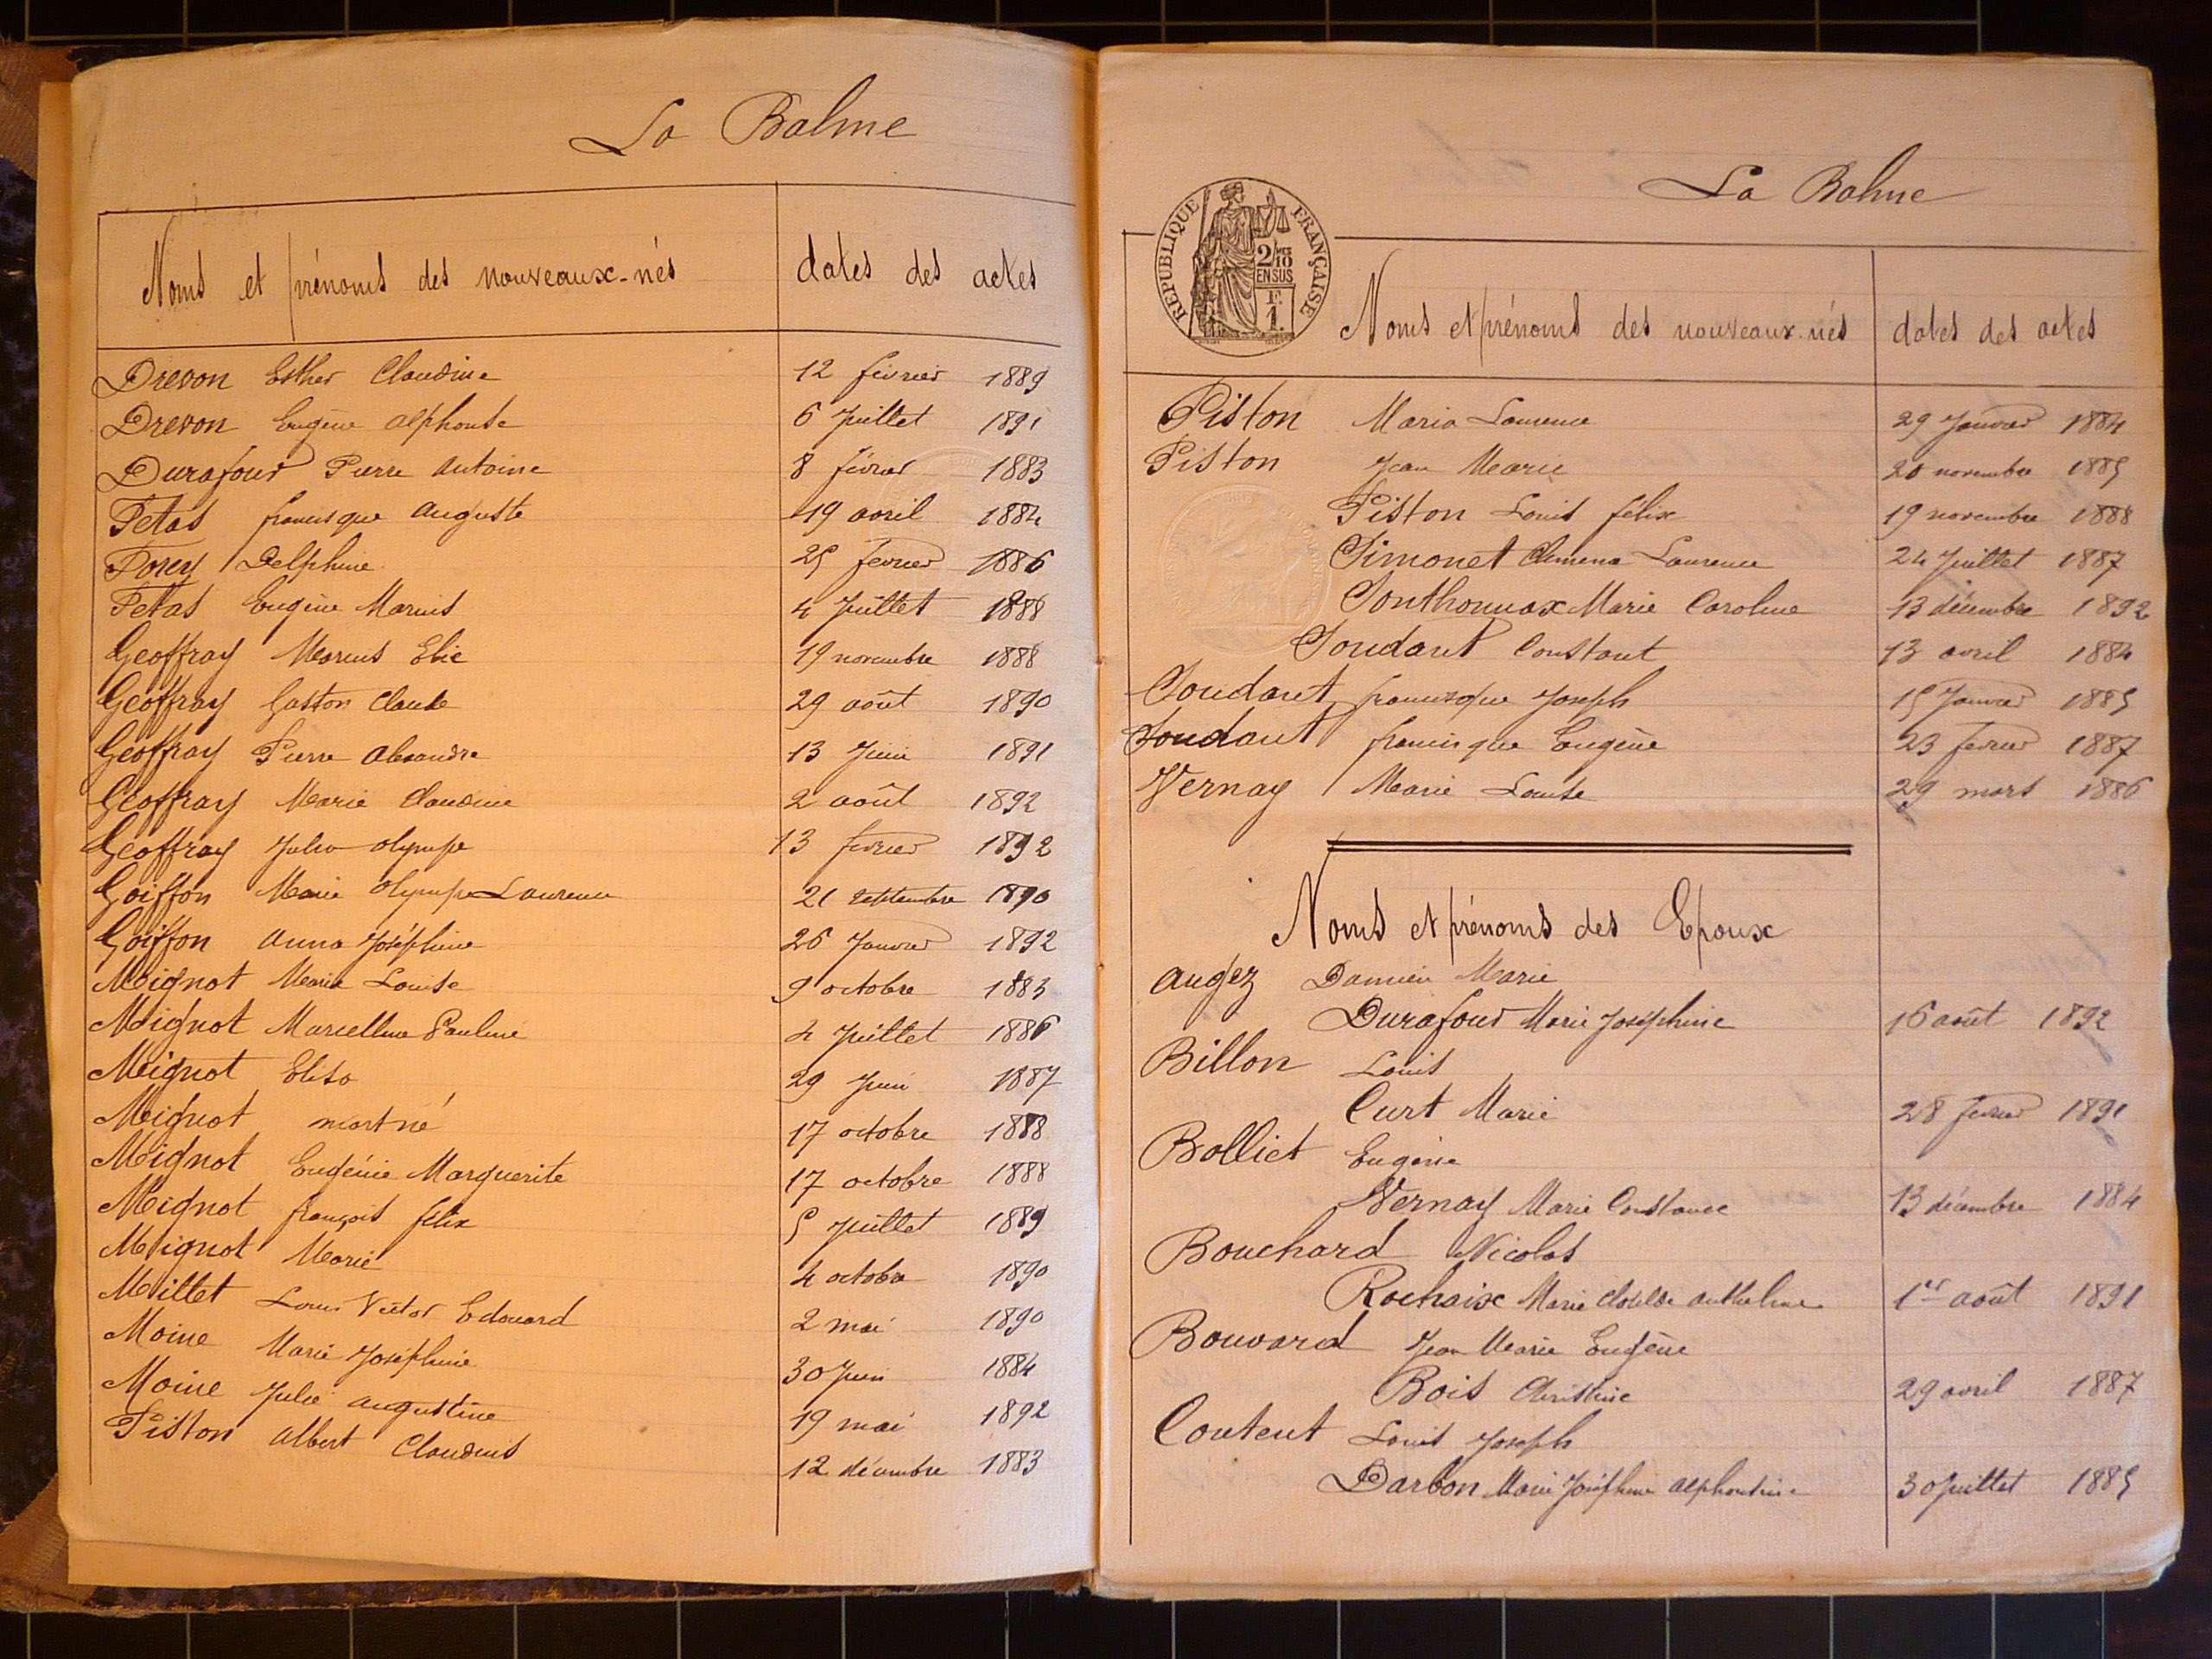 La Balme
Noms et prénoms des nouveaux-nés dates des actes
Drevon Esther Claudine 12 février 1889
Drevon Eugène Alphonse 6 Juillet 1891
Durafour Pierre Antoine 8 février 1883
Fetas francisque Auguste 19 avril 1884
Forey Delphine 25 fevrier 1886
Fetas Eugène Marius 4 Juillet 1888
Geoffray Marius Elie 19 novembre 1888
Geoffray Gaston Claude 29 août 1890
Geoffray Pierre Alexandre 13 Juin 1891
Geoffray Marie Claudine 2 août 1892
Geoffray Julie olympe 13 fevrier 1892
Goiffon Marie Olympe Laurence 21 septembre 1890
Goiffon Anna Joséphine 26 Janvier 1892
Meignot Marie Louise 9 octobre 1883
Meignot Marcelline Pauline 4 Juillet 1886
Meignot Elisa 29 Juin 1887
Meignot mort né 17 octobre 1888
Meignot Eugénie Marguerite 17 octobre 1888
Meignot françois félix 5 Juillet 1889
Meignot Marie 4 octobre 1890
Millet Louis Victor Edouard 2 mai 1890
Moine Marie Joséphine 30 Juin 1884
Moine Julie augustine 19 mai 1892
Piston Albert Claudius 12 décembre 1883
La Balme
RÉPUBLIQUE FRANÇAISE
2/10
EN SUS
F.
1.
Noms et prénoms des nouveaux-nés dates des actes
Piston Maria Laurence 29 Janvier 1884
Piston Jean Marie 20 novembre 1885
Piston Louis félix 19 novembre 1888
Simonet Laurence 24 Juillet 1887
Sonthonnax Marie Caroline 13 décembre 1892
Soudant Constant 13 avril 1884
Soudant francisque Joseph 15 Janvier 1885
Soudant francisque Eugène 23 fevrier 1887
Vernay Marie Louise 29 mars 1886
Noms et prénoms des Epoux
Augez Damien Marie
Durafour Marie Joséphine 16 août 1892
Billon Louis
Curt Marie 28 fevrier 1891
Bolliet Eugène
Vernay Marie Constance 13 décembre 1884
Bouchard Nicolas
Rochaix Marie Clotilde Anthelme 1er août 1891
Bouvard Jean Marie Eugène
Bois Christine 29 avril 1887
Coutent Louis Joseph
Darbon Marie Joséphine Alphonsine 30 Juillet 1885